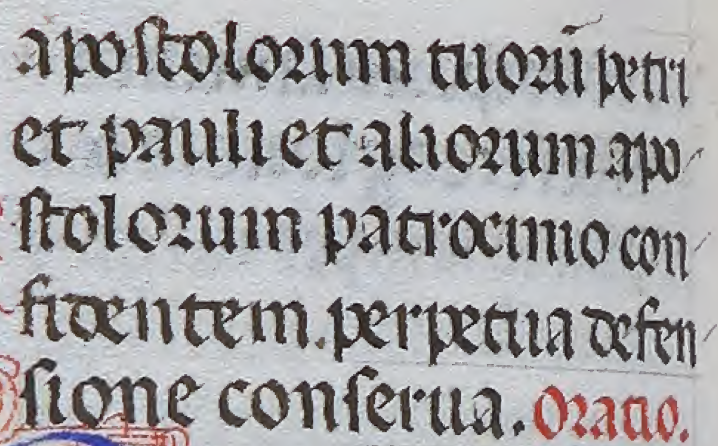 apostolorum tuorū petri
et pauli et aliorum apo
stolorum patrocinio con
fidentem. perpetua defen
sione conserua. Oratio.